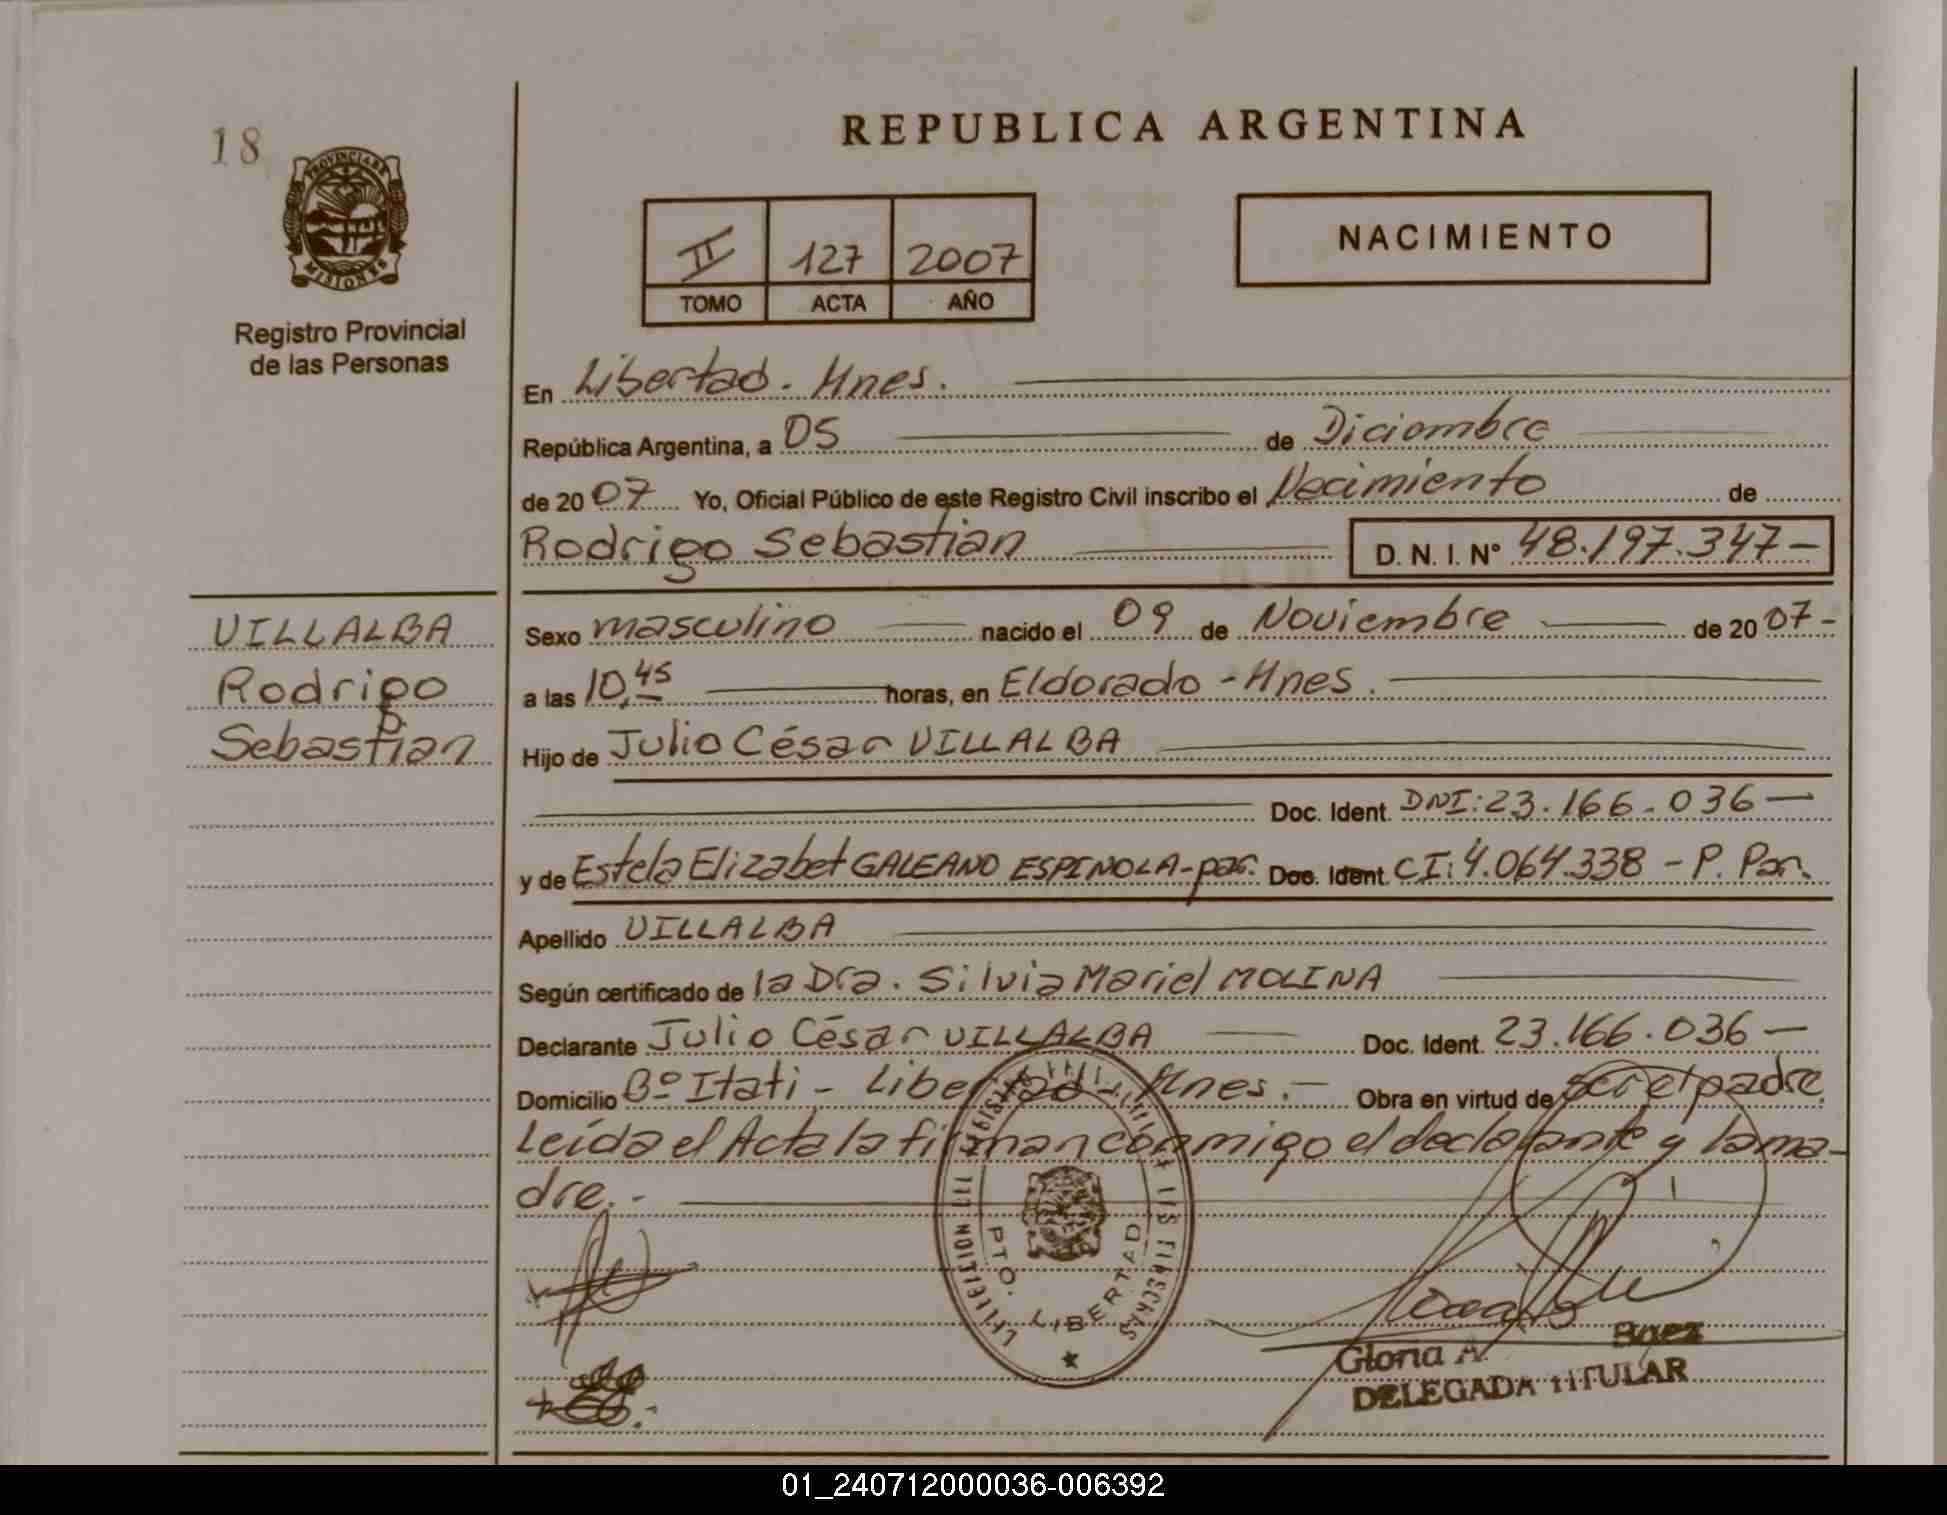 18
PROVINCIA DE
MISIONES
Registro Provincial
de las Personas
REPUBLICA ARGENTINA
II 127 2007
TOMO ACTA AÑO
NACIMIENTO
En Libertad. Mnes.
República Argentina, a 05 de Diciembre
de 2007 Yo, Oficial Público de este Registro Civil inscribo el Nacimiento de
Rodrigo Sebastián D. N. I. N° 48.197.347-
VILLALBA
Rodrigo
Sebastián
Sexo masculino nacido el 09 de Noviembre de 2007-
a las 10,45 horas, en Eldorado - Mnes.
Hijo de Julio César VILLALBA
Doc. Ident. DNI: 23.166.036
y de Estela Elizabet GALEANO ESPINOLA-par. Doc. Ident. CI: 4.064.338 - P. Par.
Apellido VILLALBA
Según certificado de la Dra. Silvia Mariel MOLINA
Declarante Julio César VILLALBA Doc. Ident. 23.166.036
Domicilio B° Itati - Libertad - Mnes. - Obra en virtud de ser el padre
Leída el Acta la firman conmigo el declarante y la ma-
dre.-
PTO. LIBERTAD
Gloria A. Baez
DELEGADA TITULAR
01_240712000036-006392